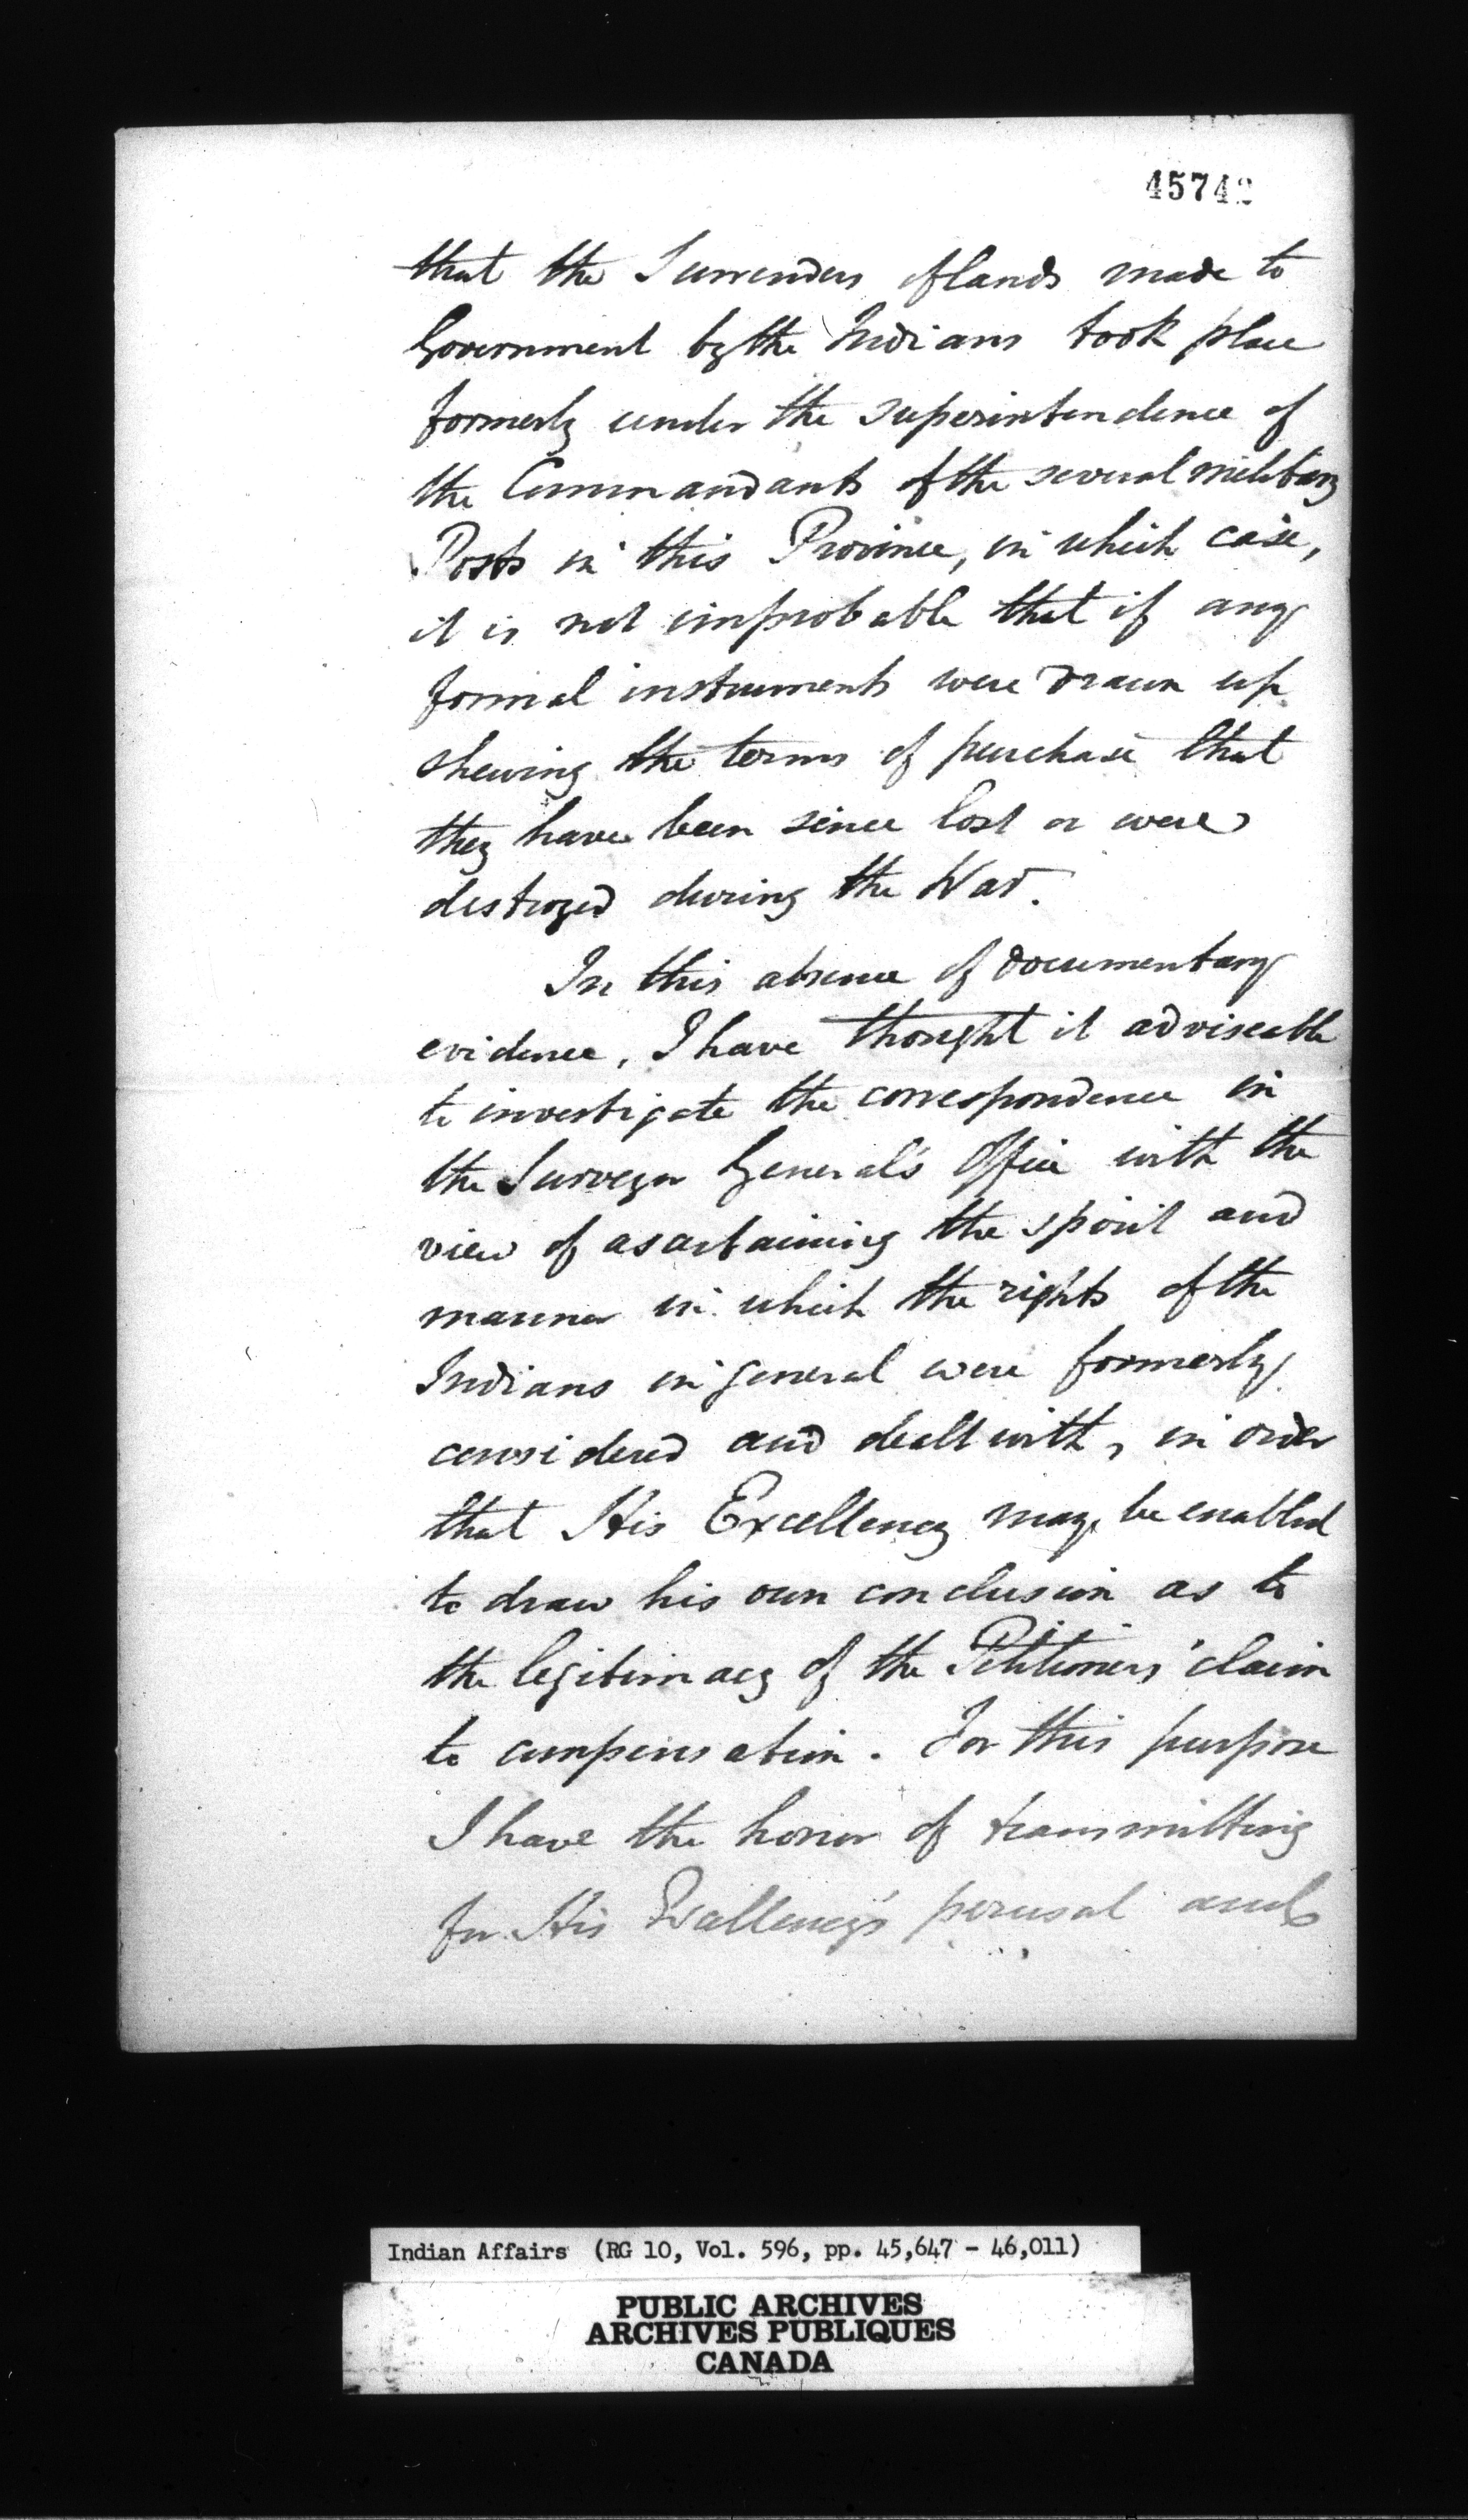 45742
that the Surrenders of lands made to
Government by the Indians took place
formerly under the superintendence of
the Commandants of the several military
Posts in this Province, in which case,
it is not improbable that if any
formal instruments were drawn up
shewing the terms of purchase that
they have been since lost or were
destroyed during the War.
In this absence of documentary
evidence, I have thought it adviseable
to investigate the correspondence in
the Surveyor General's Office with the
view of ascertaining the spirit and
manner in which the rights of the
Indians in general were formerly
considered and dealt with, in order
that His Excellency may be enabled
to draw his own conclusion as to
the legitimacy of the Petitioners' claim
to compensation. For this purpose
I have the honor of transmitting
for His Excellency's perusal and
Indian Affairs (RG 10, Vol. 596, pp. 45,647 - 46,011)
PUBLIC ARCHIVES
ARCHIVES PUBLIQUES
CANADA